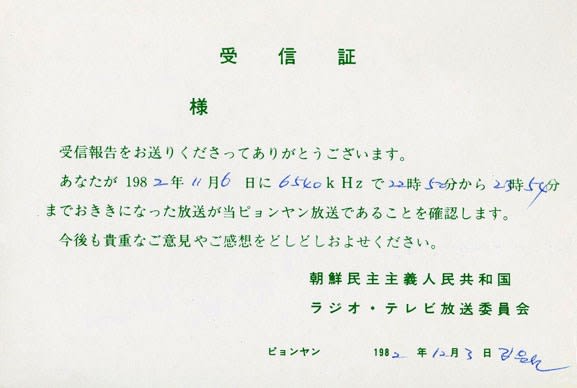 受信証
様
受信報告をお送りくださってありがとうございます。
あなたが 1982年11月6日に6540kHzで22時50分から23時54分
までおききになった放送が当ピョンヤン放送であることを確認します。
今後も貴重なご意見やご感想をどしどしおよせください。
朝鮮民主主義人民共和国
ラジオ・テレビ放送委員会
ピョンヤン 1982年12月3日